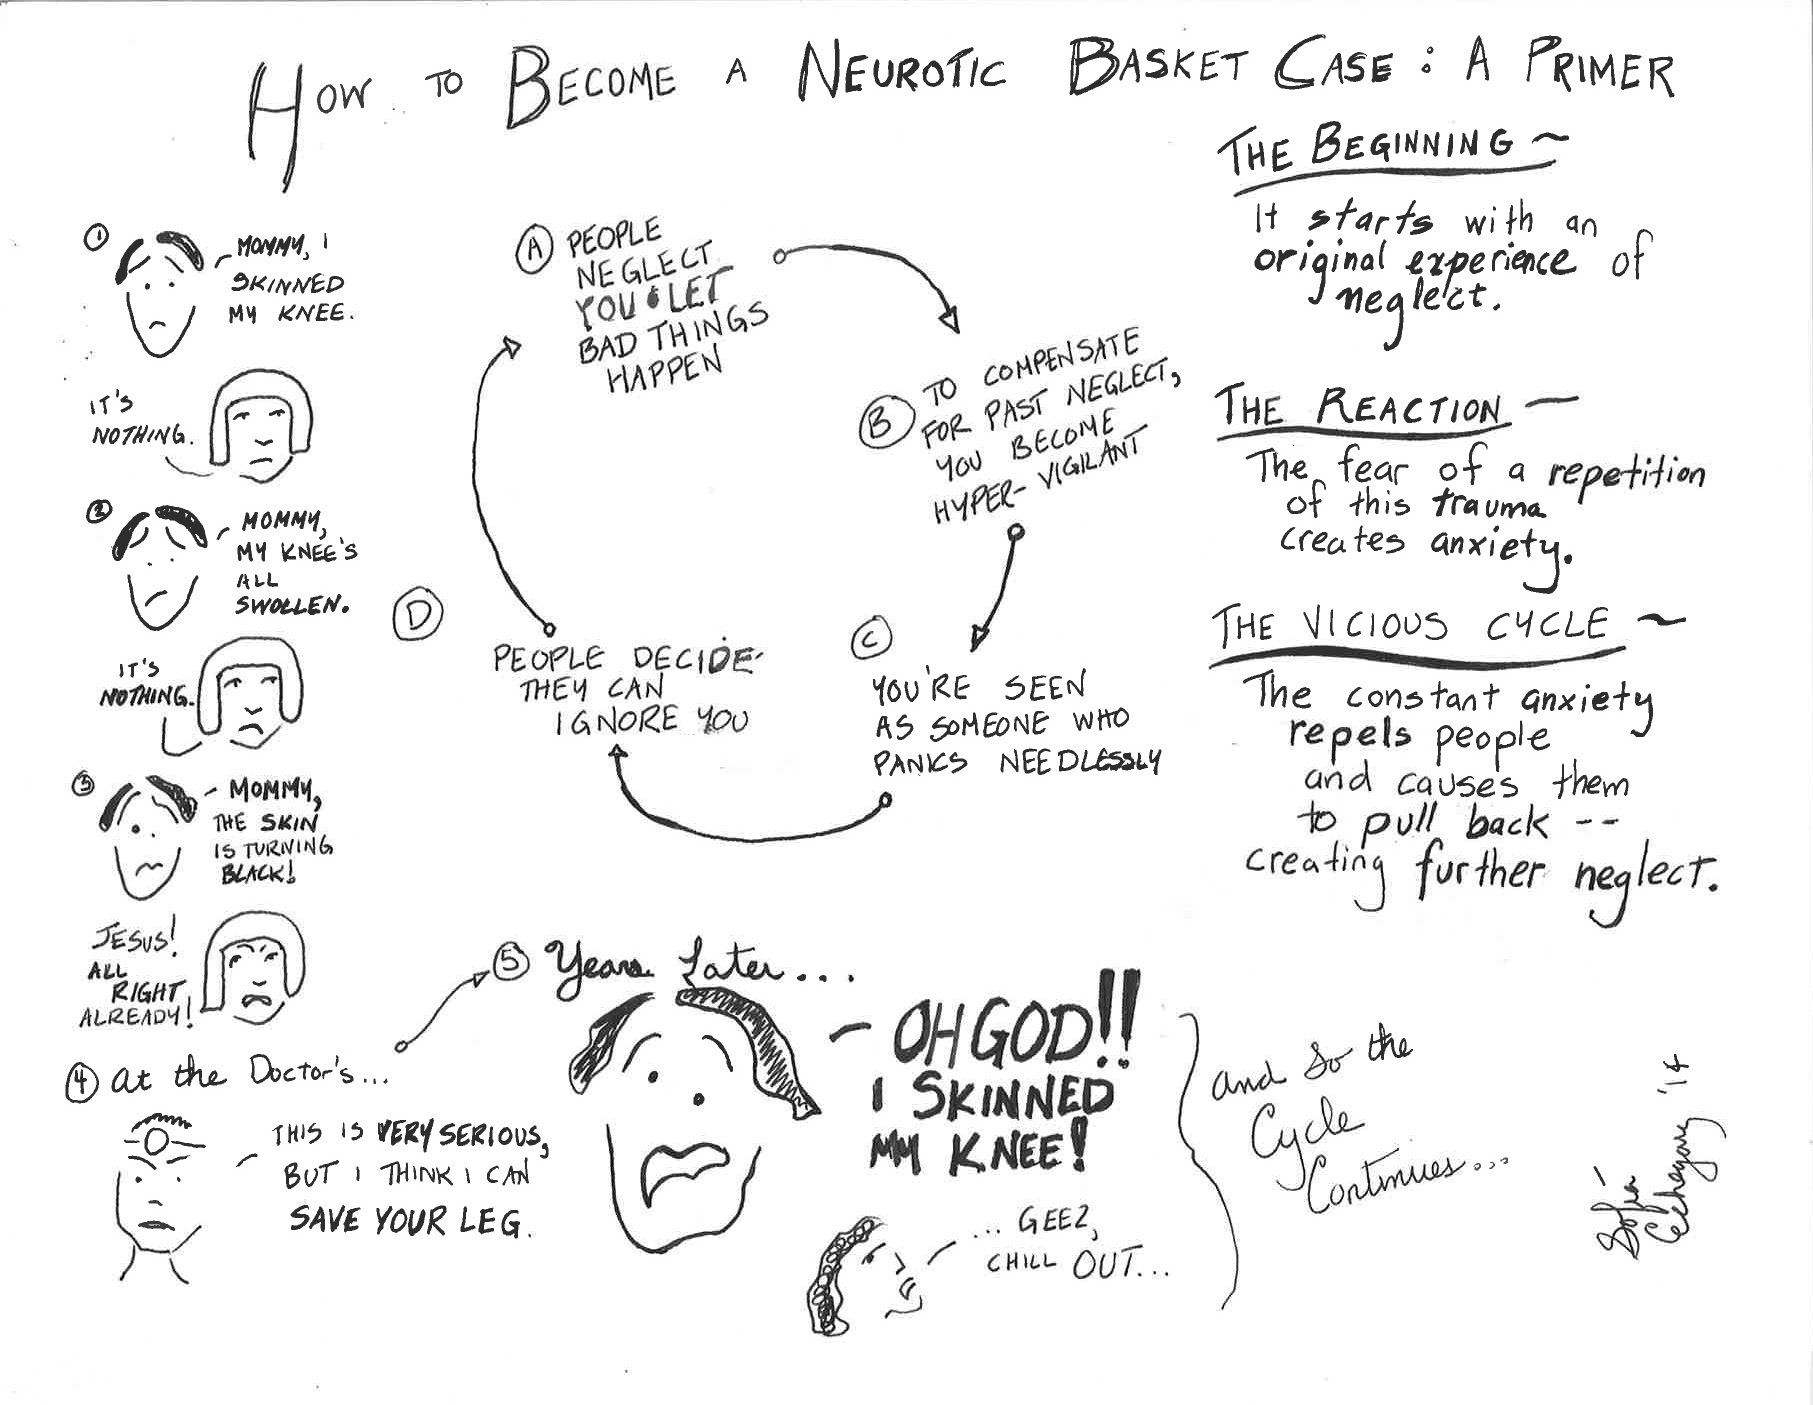 HOW TO BECOME A NEUROTIC BASKET CASE: A PRIMER
①
MOMMY, I
SKINNED
MY KNEE.
IT'S
NOTHING.
②
MOMMY,
MY KNEE'S
ALL
SWOLLEN.
IT'S
NOTHING.
③
MOMMY,
THE SKIN
IS TURNING
BLACK!
JESUS!
ALL
RIGHT
ALREADY!
④ At the Doctor's...
THIS IS VERY SERIOUS,
BUT I THINK I CAN
SAVE YOUR LEG.
Ⓐ PEOPLE
NEGLECT
YOU & LET
BAD THINGS
HAPPEN
Ⓑ TO COMPENSATE
FOR PAST NEGLECT,
YOU BECOME
HYPER-VIGILANT
Ⓒ
YOU'RE SEEN
AS SOMEONE WHO
PANICS NEEDLESSLY
Ⓓ
PEOPLE DECIDE
THEY CAN
IGNORE YOU
THE BEGINNING ~
It starts with an
original experience of
neglect.
THE REACTION —
The fear of a repetition
of this trauma
creates anxiety.
THE VICIOUS CYCLE ~
The constant anxiety
repels people
and causes them
to pull back --
creating further neglect.
⑤ Years Later...
OH GOD!!
I SKINNED
MY KNEE!
...GEEZ,
CHILL OUT...
and so the
Cycle
Continues...
Sofía
Echegaray '14